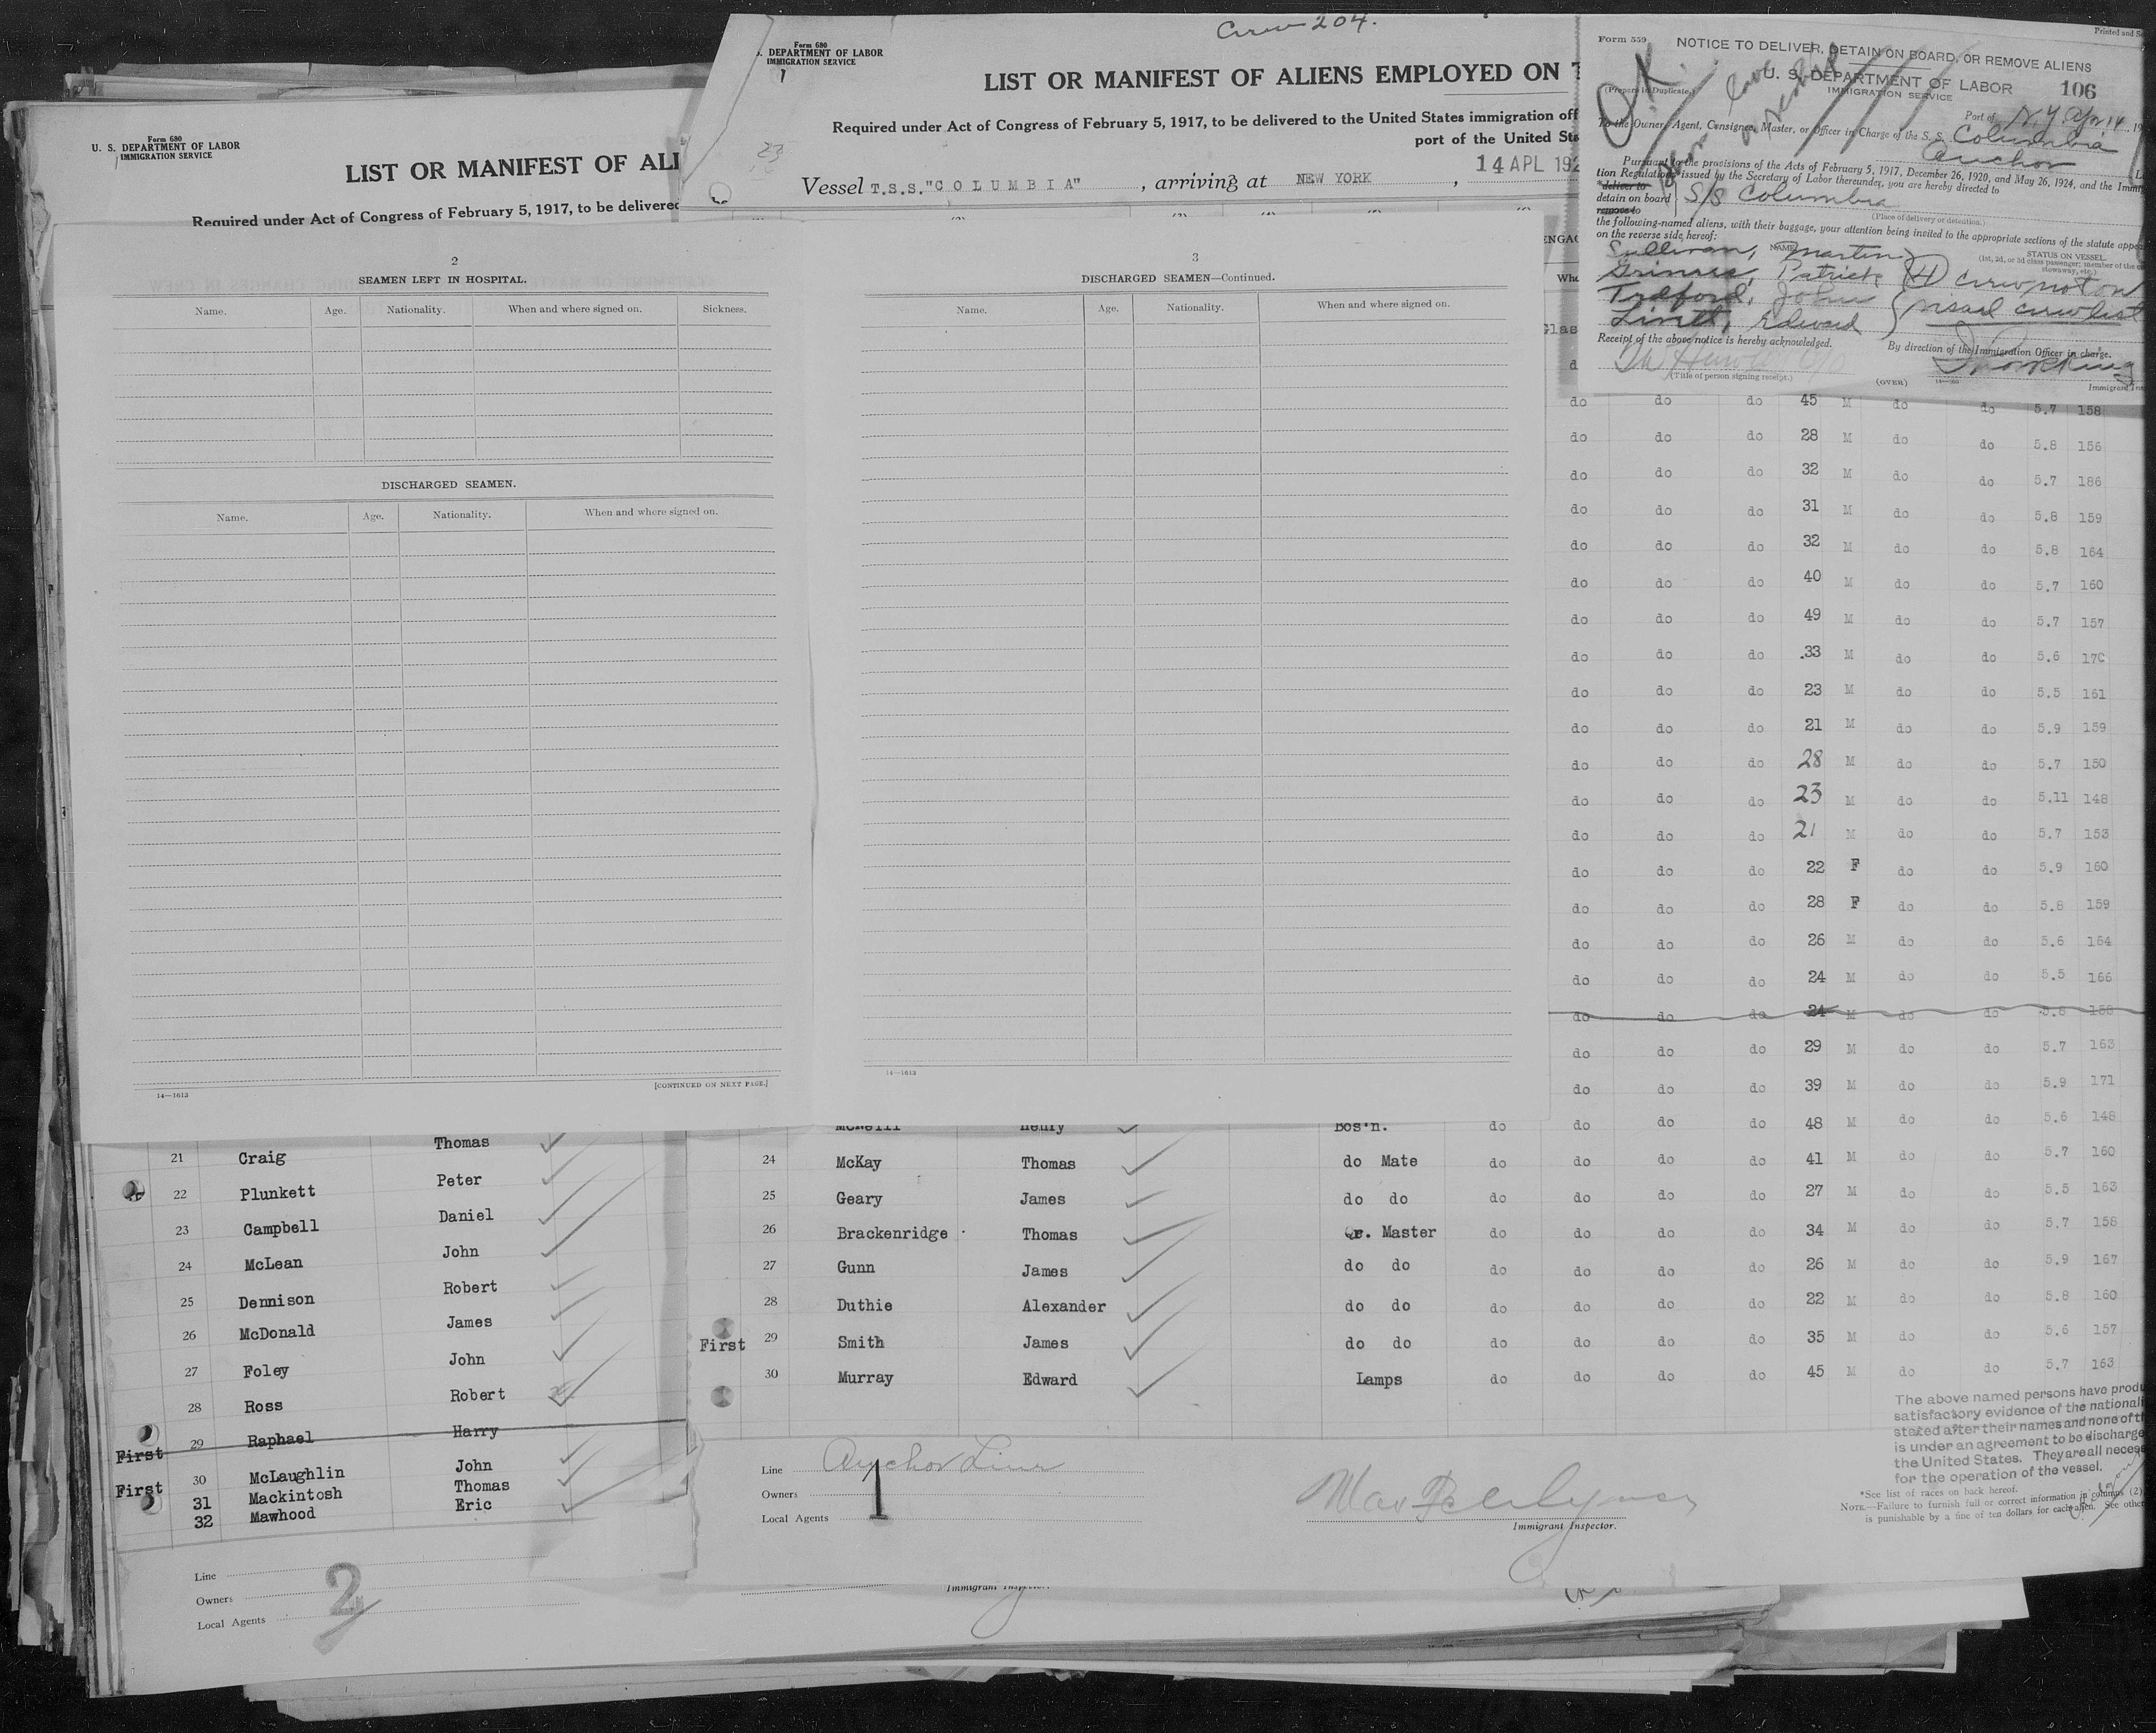 Form 680
U. S. DEPARTMENT OF LABOR
IMMIGRATION SERVICE
LIST OR MANIFEST OF ALI
Required under Act of Congress of February 5, 1917, to be delivered
Crew 204.
Form 680
S. DEPARTMENT OF LABOR
IMMIGRATION SERVICE
1
LIST OR MANIFEST OF ALIENS EMPLOYED ON T
Required under Act of Congress of February 5, 1917, to be delivered to the United States immigration off
port of the United Sta
14 APL 192
Vessel T.S.S."COLUMBIA", arriving at NEW YORK,
Form 559
Printed and S
NOTICE TO DELIVER, DETAIN ON BOARD, OR REMOVE ALIENS
U. S. DEPARTMENT OF LABOR
IMMIGRATION SERVICE
106
(Prepare in Duplicate.)
O.K.
Port of N.Y. Apr 14, 19
To the Owner, Agent, Consignee, Master, or Officer in Charge of the S. S. Columbia
Anchor L
Pursuant to the provisions of the Acts of February 5, 1917, December 26, 1920, and May 26, 1924, and the Immi
tion Regulations issued by the Secretary of Labor thereunder, you are hereby directed to
*deliver to
detain on board S/S Columbia
remove to
(Place of delivery or detention.)
the following-named aliens, with their baggage, your attention being invited to the appropriate sections of the statute appea
on the reverse side hereof:
NAME
STATUS ON VESSEL
(1st, 2d, or 3d class passenger; member of the
stowaway, etc.)
Sullivan, Martin
Patrick (4) crew not on
John visaed crew list
Edward
Receipt of the above notice is hereby acknowledged.
By direction of the Immigration Officer in charge.
(Title of person signing receipt.)
(OVER)
Immigrant Ins
2
SEAMEN LEFT IN HOSPITAL.
Name. Age. Nationality. When and where signed on. Sickness.
DISCHARGED SEAMEN.
Name. Age. Nationality. When and where signed on.
14—1613
[CONTINUED ON NEXT PAGE.]
3
DISCHARGED SEAMEN—Continued.
Name. Age. Nationality. When and where signed on.
14—1613
ENGAG
Whe
Glas
d
do do do 45 M do do 5.7 158
do do do 28 M do do 5.8 156
do do do 32 M do do 5.7 186
do do do 31 M do do 5.8 159
do do do 32 M do do 5.8 164
do do do 40 M do do 5.7 160
do do do 49 M do do 5.7 157
do do do 33 M do do 5.6 170
do do do 23 M do do 5.5 161
do do do 21 M do do 5.9 159
do do do 28 M do do 5.7 150
do do do 23 M do do 5.11 148
do do do 21 M do do 5.7 153
do do do 22 F do do 5.9 160
do do do 28 F do do 5.8 159
do do do 26 M do do 5.6 164
do do do 24 M do do 5.5 166
do do do 24 M do do 5.8 158
do do do 29 M do do 5.7 163
do do do 39 M do do 5.9 171
McNeill Henry Bos'n. do do do do 48 M do do 5.6 148
24 McKay Thomas do Mate do do do do 41 M do do 5.7 160
25 Geary James do do do do do do 27 M do do 5.5 163
26 Brackenridge Thomas Qr. Master do do do do 34 M do do 5.7 158
27 Gunn James do do do do do do 26 M do do 5.9 167
28 Duthie Alexander do do do do do do 22 M do do 5.8 160
First 29 Smith James do do do do do do 35 M do do 5.6 157
30 Murray Edward Lamps do do do do 45 M do do 5.7 163
The above named persons have produ
satisfactory evidence of the nationali
stated after their names and none of th
is under an agreement to be discharge
the United States. They are all neces
for the operation of the vessel.
*See list of races on back hereof.
NOTE.—Failure to furnish full or correct information in columns (2)
is punishable by a fine of ten dollars for each alien. See other
Line Anchor Line
Owners
Local Agents
1
Immigrant Inspector.
21 Craig Thomas
22 Plunkett Peter
23 Campbell Daniel
24 McLean John
25 Dennison Robert
26 McDonald James
27 Foley John
28 Ross Robert
First 29 Raphael Harry
First 30 McLaughlin John
31 Mackintosh Thomas
32 Mawhood Eric
Line
Owners
Local Agents
2
Immigrant Inspector.